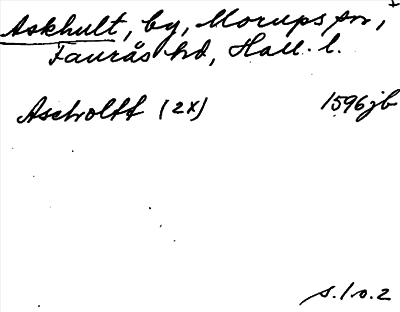 Askhult, by, Morups sn,
Faurås hd, Hall. l.
Ascholtt (2x) 1596 jb
s. 1 o. 2